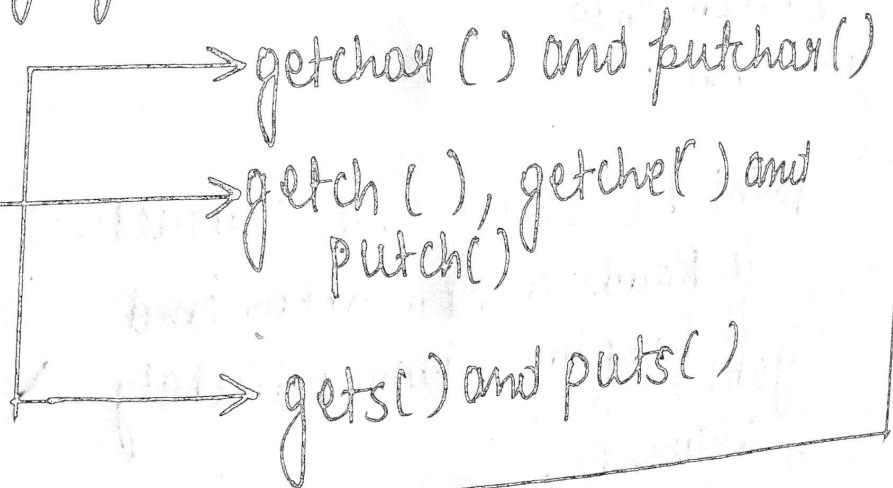 getchar () and putchar()
getch (), getche() and
putch()
gets() and puts()